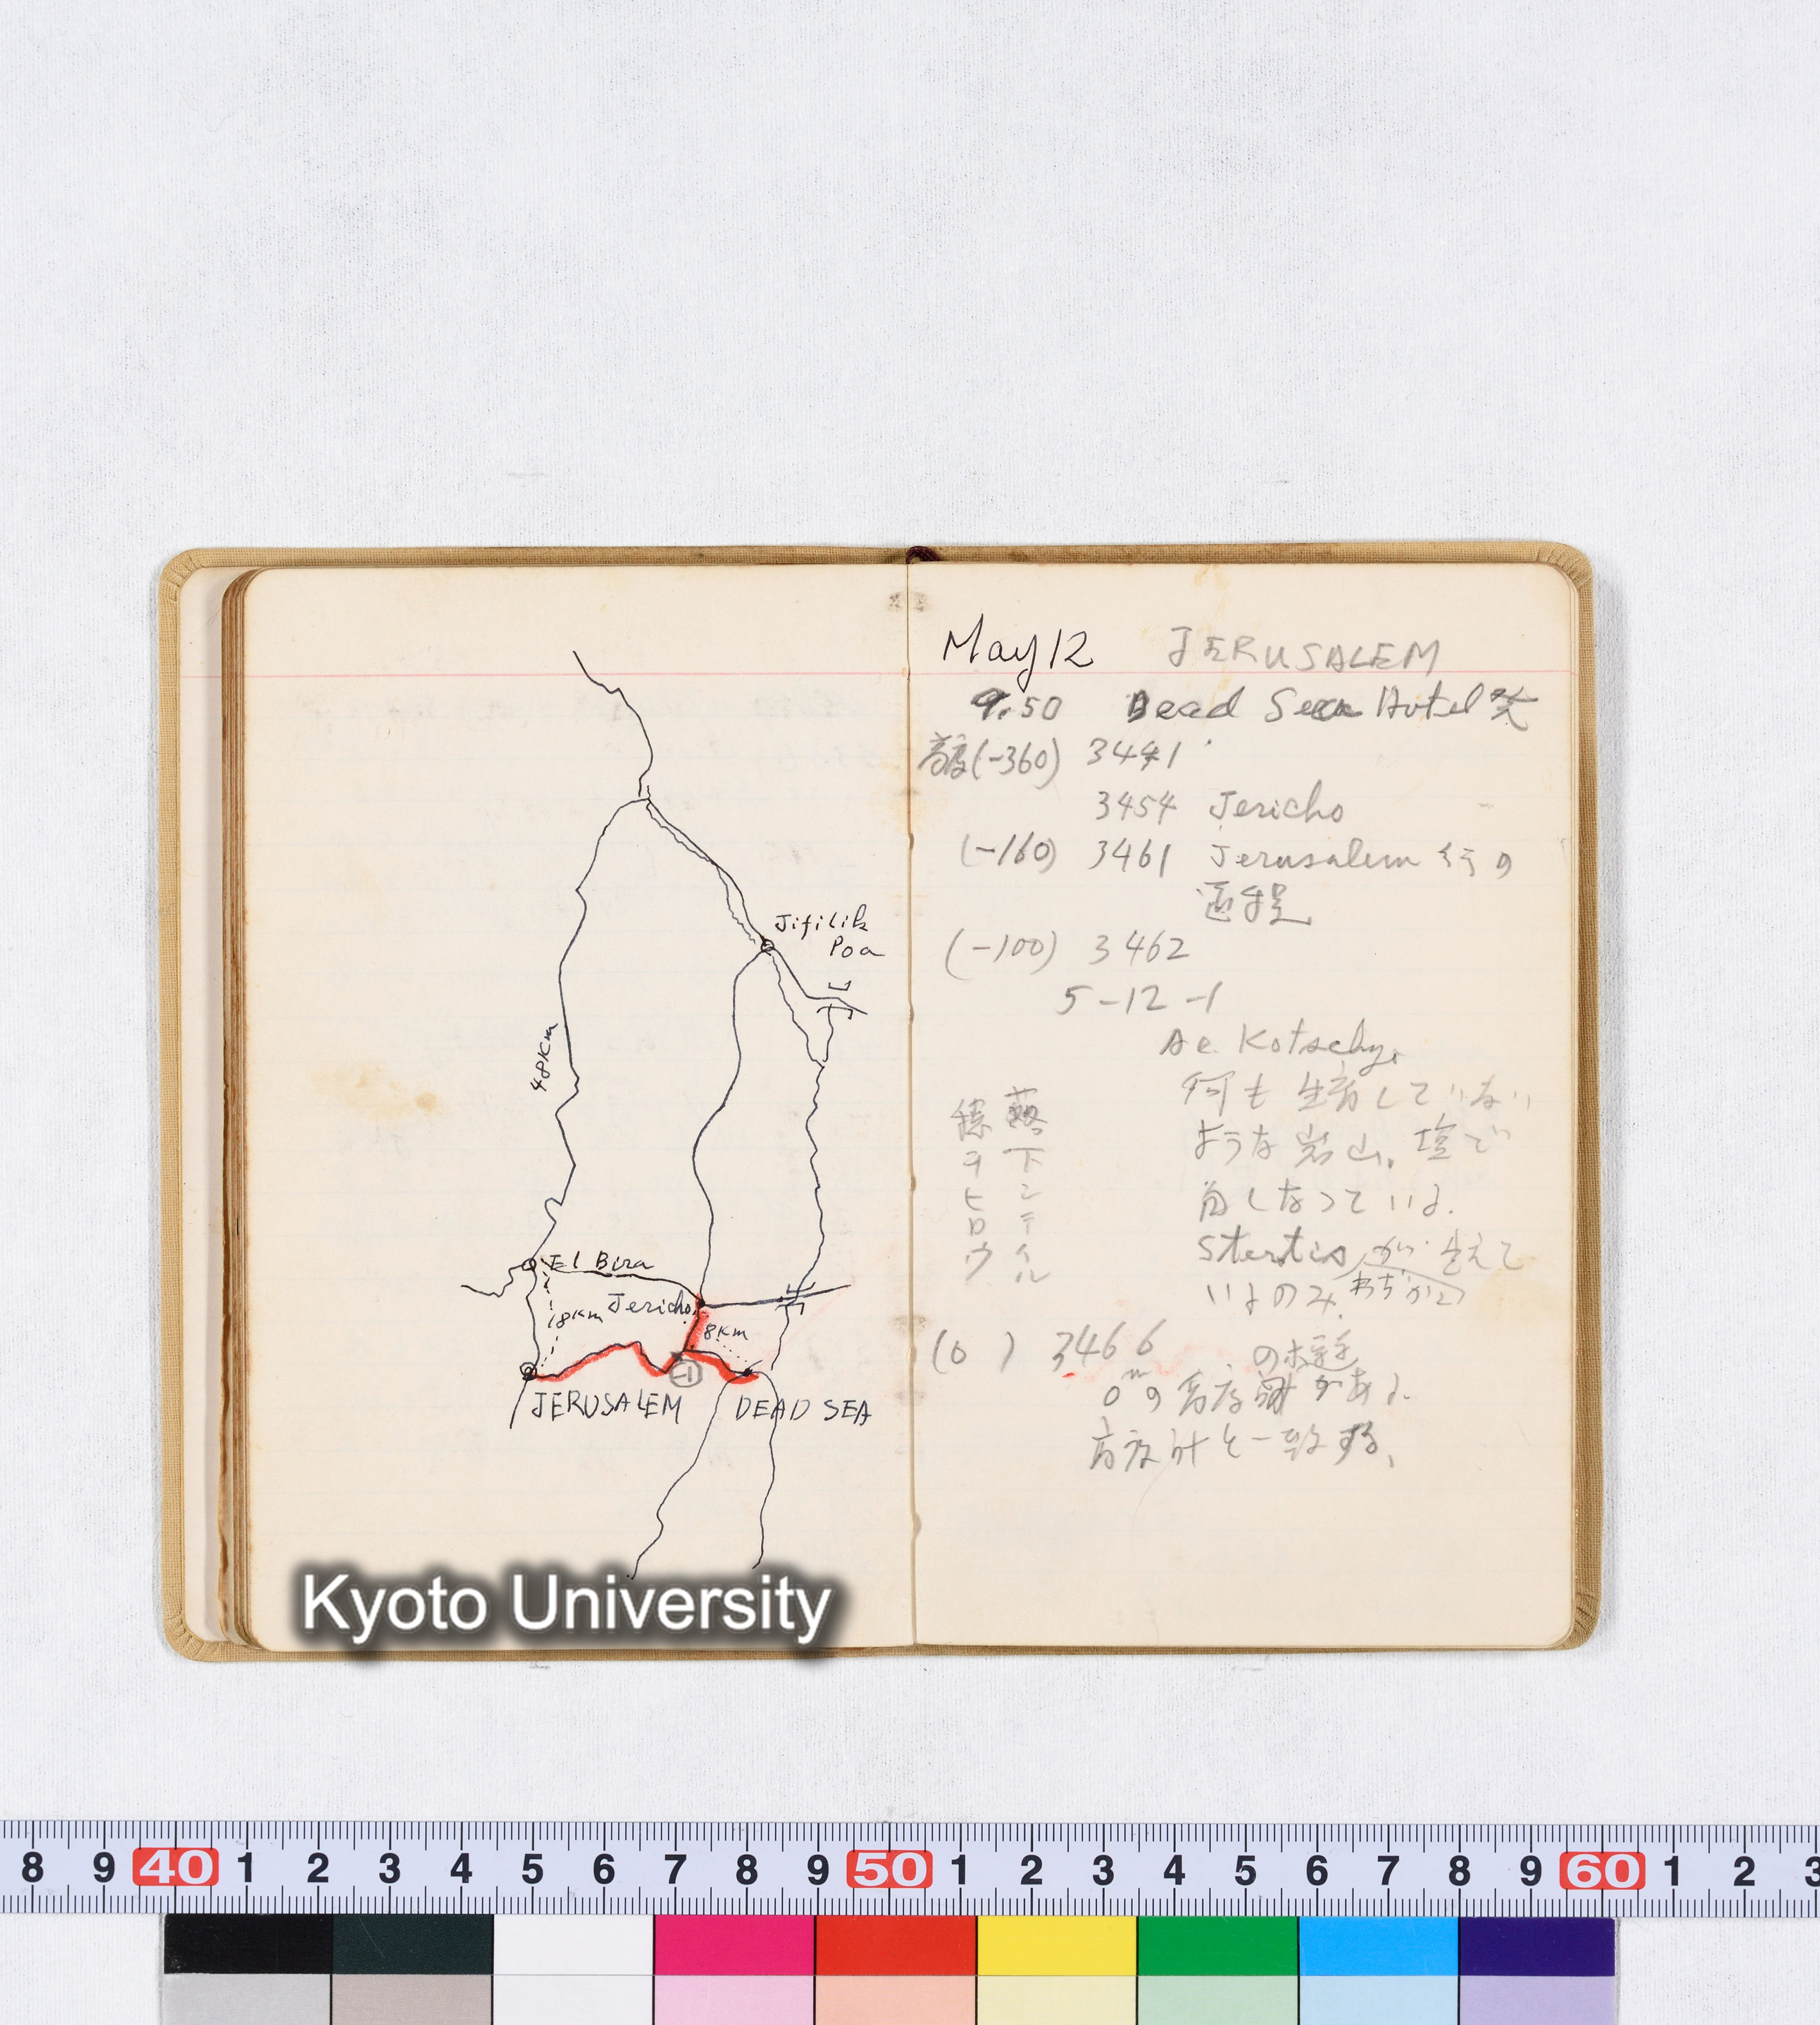 Jifilik
Poa
48Km
El Bira
18Km
Jericho
8Km
-1
JERUSALEM
DEAD SEA
May 12 JERUSALEM
9.50 Dead Sea Hotel 発
高度(-360) 3441
3454 Jericho
(-160) 3461 Jerusalem 行の
道程
(-100) 3462
5-12-1
Ae. Kotschyi
何も生育していない
ような岩山。塩で
白くなっている。
が 生えて
いるのみ。わずかに
落下シテイル
穂ヲヒロウ
(0) 3466
の標識
0m の高度 がある。
高度計と一致する。
Kyoto University
8 9 40 1 2 3 4 5 6 7 8 9 50 1 2 3 4 5 6 7 8 9 60 1 2 3